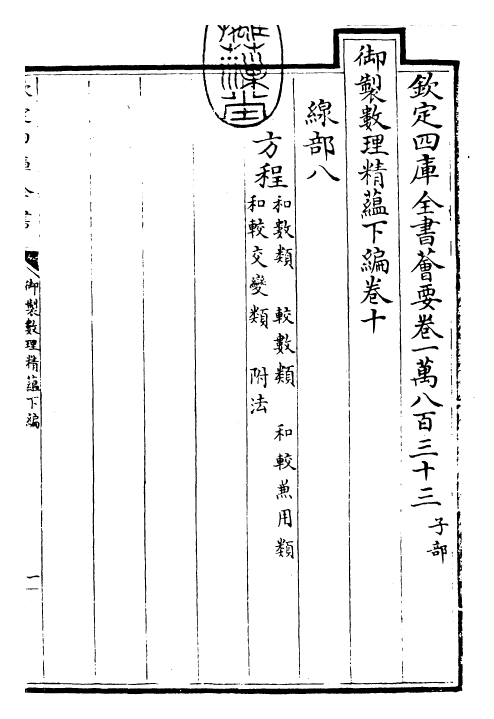 欽定四庫全書薈要卷一萬八百三十三 子部
御製數理精蘊下編卷十
線部八
方程 和數類 較數類 和較兼用類
和較交變類 附法
御製數理精蘊下編
一